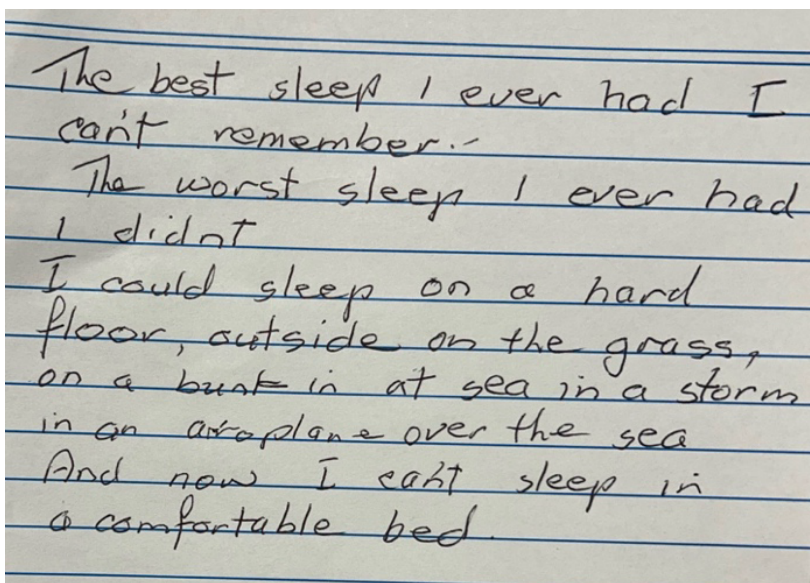 The best sleep I ever had I
can't remember.-
The worst sleep I ever had
I didnt
I could sleep on a hard
floor, outside on the grass,
on a bunk in at sea in a storm
in an aroplane over the sea
And now I can't sleep in
a comfortable bed.